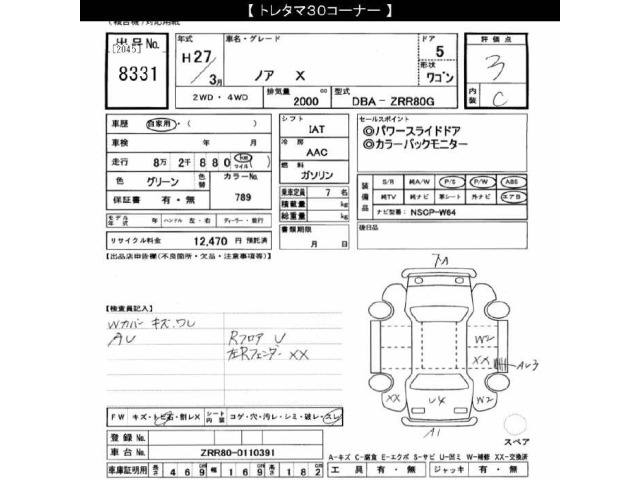 【 トレタマ30コーナー 】
(複合機)対応用紙
出品No.
[2045]
8331
年式
H27/3月
車名・グレード
ノア X
ドア
5
形状
ワゴン
評価点
3
内装
C
2WD・4WD
排気量
2000 cc
型式
DBA-ZRR80G
車歴 自家用・( )
車検 年 月
走行 8万 2千 880 km マイル
色 グリーン 色替 カラーNo. 789
保証書 有・無
モデル年式 年 ハンドル 左・右 ディーラー・並行
リサイクル料金 12,470 円 預託済
シフト
IAT
冷房
AAC
燃料
ガソリン
乗車定員 7 名
積載量 kg
総重量 kg
書類期限
月 日
セールスポイント
◎パワースライドドア
◎カラーバックモニター
装備品
S/R 純A/W P/S P/W ABS
純TV 純ナビ 革シート 外ナビ エアB
ナビ型番: NSCP-W64
後日品
【出品店申告欄(不良箇所・欠品・注意事項等)】
【検査員記入】
Wカバー キズ.ワレ
AU
Rフロア U
左Rフェンダー XX
A
W2
XX
XX
U4
W2
A1
スペア
FW キズ・トビ石・割レX シート内装 コゲ・穴・汚レ・シミ・破レ・スレ
登録No.
車台No. ZRR80-0110391
車庫証明用 長さ 469 幅 169 高さ 182
A-キズ C-腐食 E-エクボ S-サビ U-凹ミ W-補修 XX-交換済
工具 有・無 ジャッキ 有・無